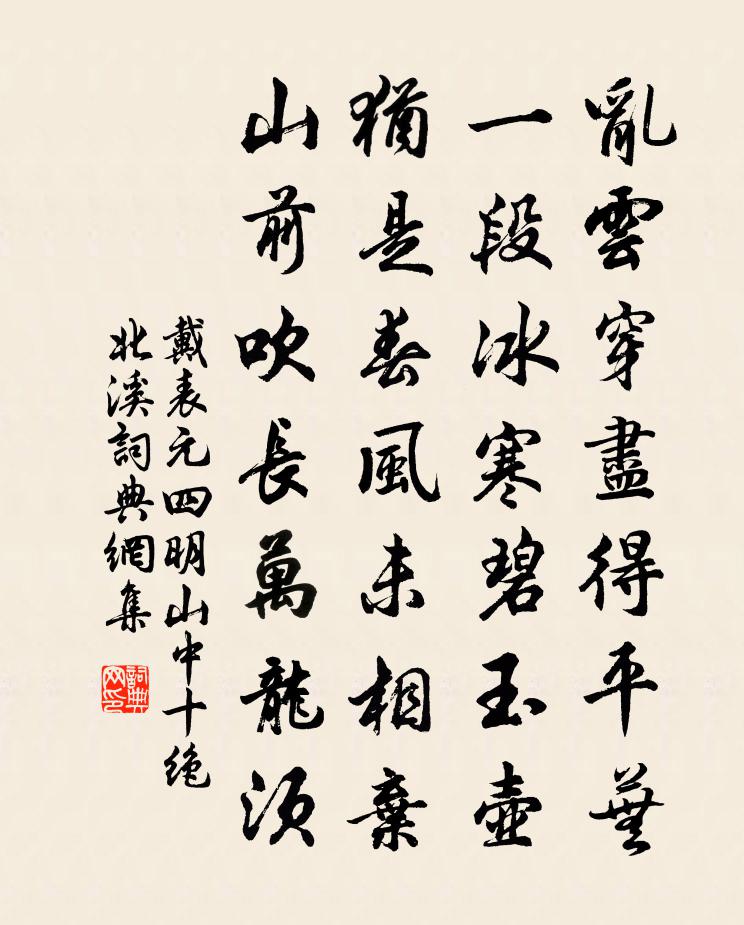 亂雲穿盡得平蕪
一段冰寒碧玉壺
猶是春風未相棄
山前吹長萬龍須
戴表元四明山中十絕
北溪詞典網集
詞典網印